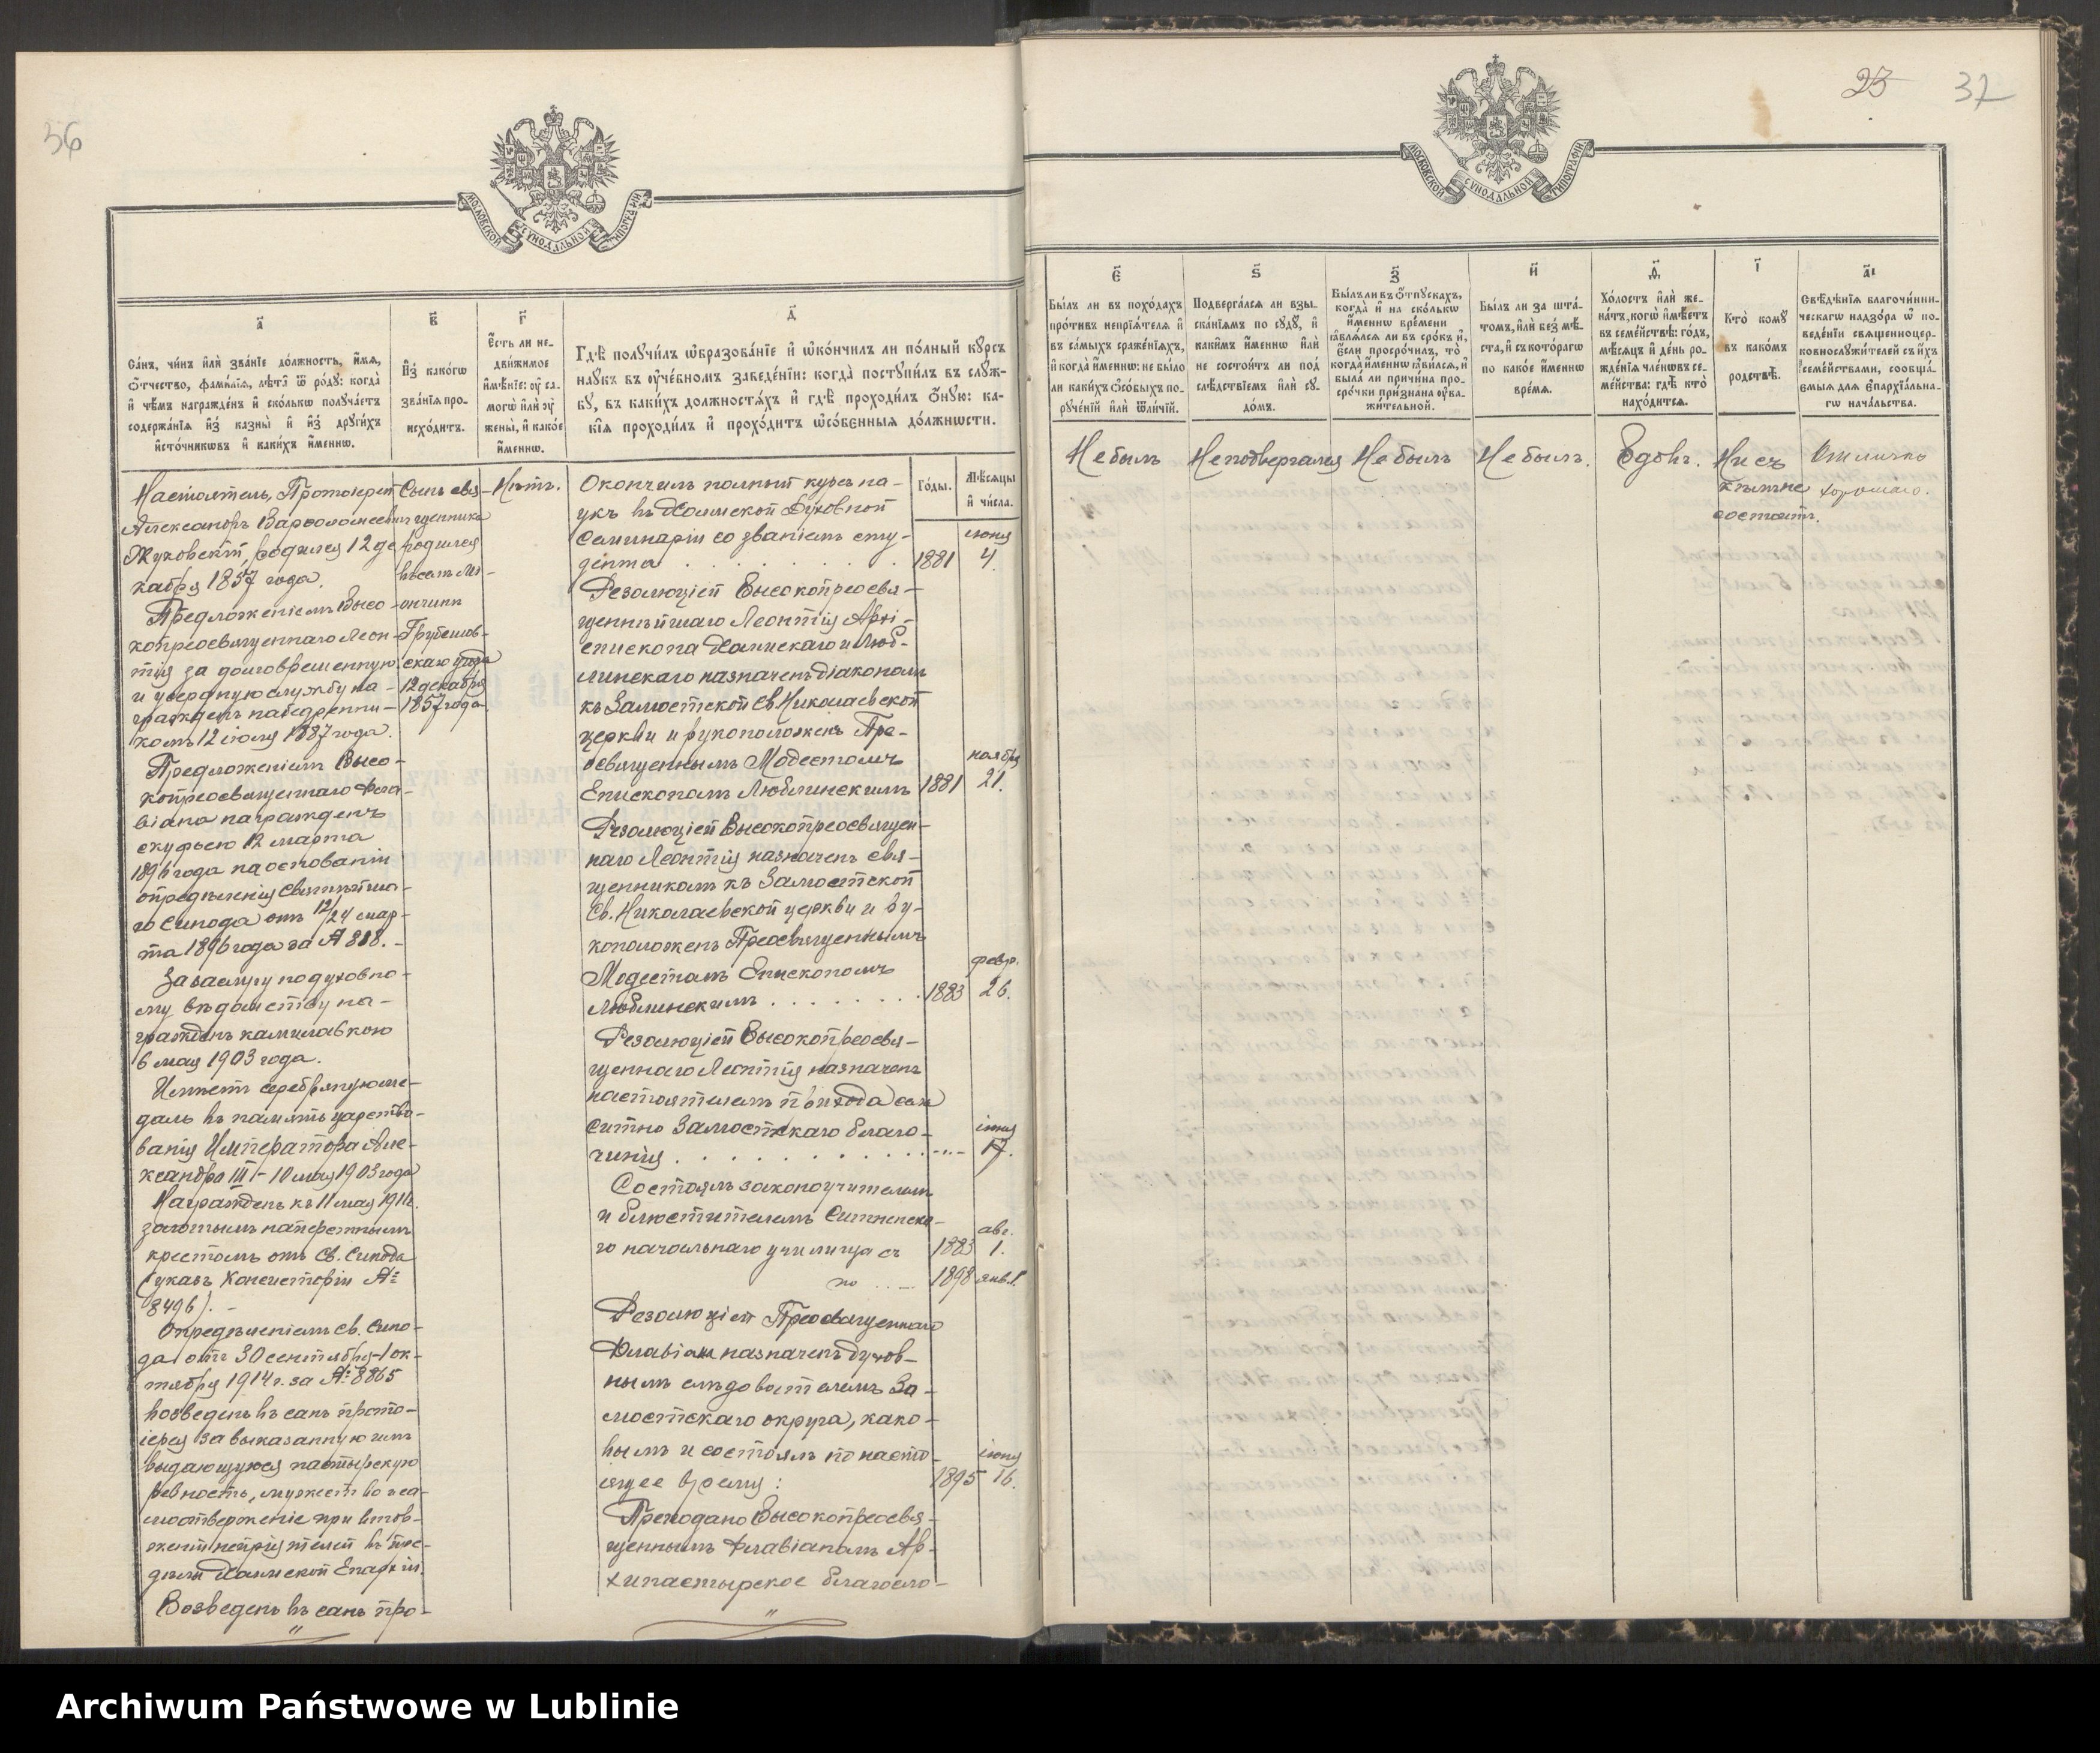 56
МОСКОВСКОЙ СѴНОДАЛЬНОЙ ТИПОГРАФІИ
а҃
Са́нъ, чи́нъ и҆лѝ зва́нїе до́лжность, и҆́мѧ,
ѻ҆́тчество, фамилїѧ, лѣ́тъ ѿ ро́дꙋ: когда̀
и҆ чѣ́мъ награжде́нъ и҆ ско́лькѡ получа́етъ
содержа́нїѧ и҆з̾ казны̀ и҆ и҆з̾ дрꙋги́хъ
и҆сто́чникѡвъ и҆ каки́хъ и҆́меннѡ.
в҃
И҆з̾ како́гѡ
зва́нїѧ про-
исхо́дитъ.
г҃
Е҆́сть ли не-
дви́жимое
и҆мѣ́нїе: ᲂу҆ са-
могѡ̀ и҆лѝ ᲂу҆
жены̀, и҆ како́е
и҆́меннѡ.
д҃
Гдѣ̀ полꙋчи́лъ ѡ҆бразова́нїе и҆ ѡ҆ко́нчилъ ли по́лный кꙋ́рсъ
наꙋ́къ въ ᲂу҆че́бномъ заведе́нїи: когда̀ постꙋпи́лъ въ слꙋ́ж-
бꙋ, въ каки́хъ должностѧ́хъ и҆ гдѣ̀ проходи́лъ ѻ҆́нꙋю: ка-
кі̑ѧ проходи́лъ и҆ прохо́дитъ ѡ҆со́бєнныѧ до́лжнѡсти.
Го́ды.
Мѣ́сѧцы
и҆ чи́сла.
Настоятель, Протоіерей
Александръ Варѳоломеевичъ
Жуховскій, родился 12 де-
кабря 1857 года.
Предложеніемъ Высо-
копреосвященнаго Леон-
тія за долговременную
и усердную службу на-
гражденъ набедренни-
комъ 12 іюля 1887 года.
Предложеніемъ Высо-
копреосвященнаго Фла-
віана награжденъ
скуфьею 12 марта
1896 года на основаніи
опредѣленія Святѣйша-
го Синода отъ 12/24 мар-
та 1896 года за № 818.-
За заслуги по духовно-
му вѣдомству на-
гражденъ камилавкою
6 мая 1903 года.
Имѣетъ серебряную ме-
даль въ память царство-
ванія Императора Але-
ксандра III - 10 мая 1903 года
Награжденъ къ 11 мая 1911г.
золотымъ наперснымъ
крестомъ отъ Св. Синода
(указъ Консисторіи №
8496). -
Опредѣленіемъ Св. Сино-
да отъ 30 сентября-1 ок-
тября 1914 г. за № 8865
возведенъ въ санъ прото-
іерея за выказанную имъ
выдающуюся пастырскую
ревность, мужество и са-
моотверженіе при втор-
женіи непріятелей въ пре-
дѣлы Холмской Епархіи.
Возведенъ въ санъ про-
Сынъ свя-
щенника
родился
въ селѣ
Грубешов-
скаго уѣзда
12 декабря
1857 года
Нѣтъ.
Окончилъ полный курсъ на-
укъ въ Холмской Духовной
Семинаріи со званіемъ сту-
дента . . . . . . . 1881 іюня 4.
Резолюціей Высокопреосвя-
щеннѣйшаго Леонтія Архі-
епископа Холмскаго и Люб-
линскаго назначенъ діакономъ
къ Замостской Св Николаевской
церкви и рукоположенъ Пре-
освященнымъ Модестомъ
Епископомъ Люблинскимъ 1881 ноября 21.
Резолюціей Высокопреосвящен-
наго Леонтія назначенъ свя-
щенникомъ къ Замостской
Св. Николаевской церкви и ру-
коположенъ Преосвященнымъ
Модестомъ Епископомъ
Люблинскимъ . . . . . . . . 1883 февр. 26.
Резолюціей Высокопреосвя-
щеннаго Леонтія назначенъ
настоятелемъ прихода села
Ситно Замостскаго благо-
чинія . . . . . . . . . . . . -"- іюня 17.
Состоялъ законоучителемъ
и блюстителемъ Ситненска-
го начальнаго училища съ 1883 авг. 1.
по .. — 1898 янв. 1.
Резолюціей Преосвященнаго
Флавіана назначенъ духов-
нымъ слѣдователемъ За-
мостскаго округа, како-
вымъ и состоялъ по насто-
ящее время: 1895 іюня 16.
Преподано Высокопреосвя-
щеннымъ Флавіаномъ Ар-
хипастырское благосло-
23 37
МОСКОВСКОЙ СѴНОДАЛЬНОЙ ТИПОГРАФІИ
є҃
Бы́лъ ли въ похо́дахъ
про́тивъ непрїѧ́телѧ и҆
въ са́мыхъ сраже́нїѧхъ,
и҆ когда̀ и҆́меннѡ: не бы́ло
ли каки́хъ ѻ҆со́быхъ по-
рꙋче́нїй и҆лѝ ѿли́чїй.
ѕ҃
Подверга́лсѧ ли взы-
ска́нїѧмъ по сꙋдꙋ̀, и҆
каки́мъ и҆́меннѡ и҆лѝ
не состои́тъ ли под̾
слѣ́дствїемъ и҆лѝ сꙋ-
до́мъ.
з҃
Бы́лъ ли въ ѻ҆́тпꙋскахъ,
когда̀ и҆ на ско́лькѡ
и҆́меннѡ вре́мени
ꙗ҆влѧ́лсѧ ли въ сро́къ и҆,
є҆́сли просро́чилъ, то̀
когда̀ и҆́меннѡ ꙗ҆ви́лсѧ, и҆
была̀ ли причи́на про-
сро́чки при́знана ᲂу҆ва-
жи́тельной.
и҃
Бы́лъ ли за шта́-
томъ, и҆лѝ без̾ мѣ́-
ста, и҆ съ кото́рагѡ
по како́е и҆́меннѡ
вре́мѧ.
ѳ҃
Хо́лостъ и҆лѝ же-
на́тъ, когѡ̀ и҆мѣ́етъ
въ семе́йствѣ: го́дъ,
мѣ́сѧцъ и҆ де́нь ро-
жде́нїѧ чле́нѡвъ се-
ме́йства: гдѣ̀ кто̀
нахо́дитсѧ.
і҃
Кто̀ комꙋ̀
въ како́мъ
родствѣ̀.
а҃і
Свѣ́дѣнїѧ благочи́нни-
ческагѡ надзо́ра ѡ҆ по-
веде́нїи свѧщенноцер-
ковнослꙋжи́телей съ и҆́хъ
семе́йствами, сообща́-
емыѧ для є҆парха́льна-
гѡ нача́льства.
Не былъ
Неподвергался
Не былъ
Не былъ.
Вдовъ.
Ни съ
кѣмъ не
состоитъ.
Отлично
хорошаго.
Archiwum Państwowe w Lublinie